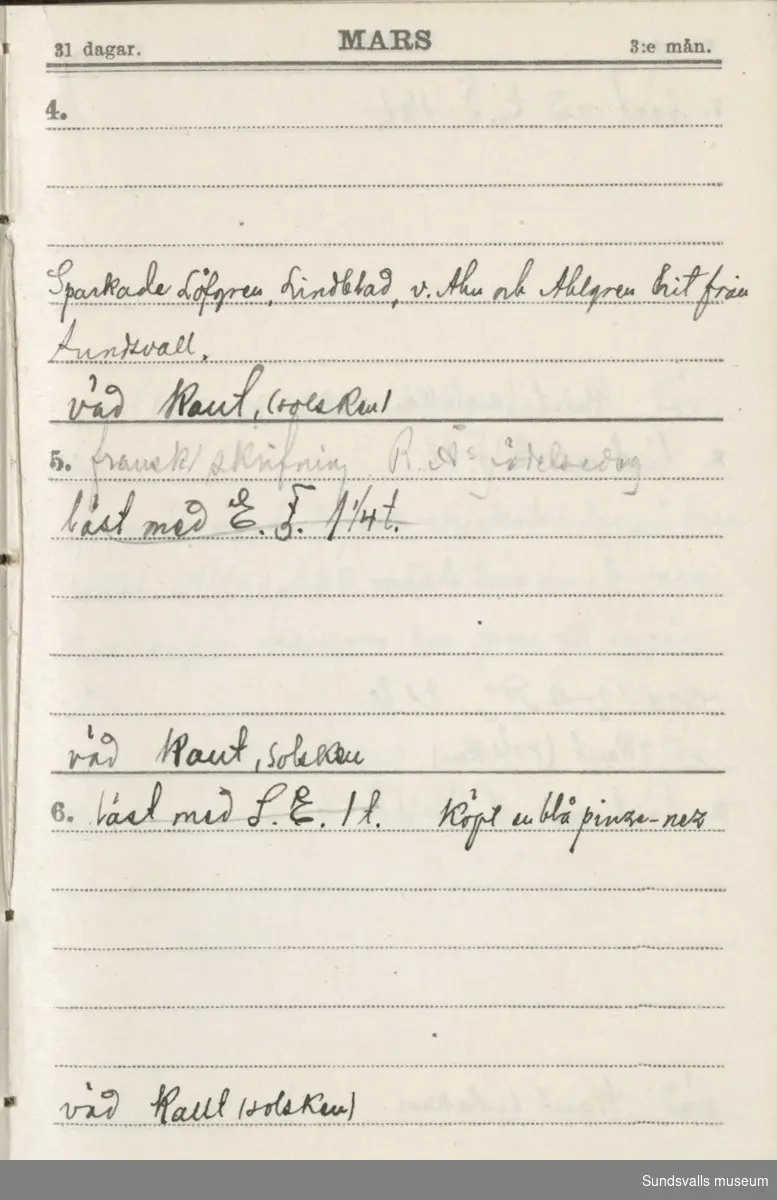 31 dagar. MARS 3:e mån.
4.
Sparkade Löfgren, Lindblad, v. Ahn och Ahlgren Erit från
Sundsvall.
väd Kant, (solsken)
5. fransk skrifning. R. A:s födelsedag
läst med E. F. 1 1/4 t.
väd Kant, solsken
6. läst med S. E. 1 t. Köpt en blå pinze-nez
väd Kant (solsken)
Sundsvalls museum